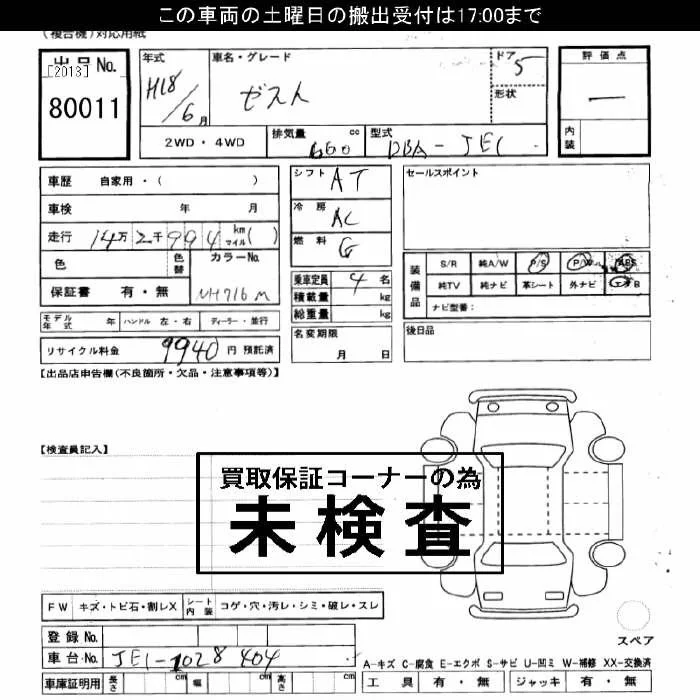 この車両の土曜日の搬出受付は17:00まで
(複合機)対応用紙
出品No.
[2013]
80011
年式
H18/6月
車名・グレード
ゼスト
ドア
5
形状
評価点
内装
2WD・4WD
排気量 660 cc
型式 DBA-JE1
車歴 自家用・( )
車検 年 月
走行 14万2千994 km マイル( )
色
色替
カラーNo.
保証書 有・無
NH716M
モデル年式 年 ハンドル 左・右 ディーラー・並行
リサイクル料金 9940 円 預託済
シフト AT
冷房 AC
燃料 G
乗車定員 4 名
積載量 kg
総重量 kg
名変期限
月 日
セールスポイント
装備品
S/R 純A/W P/S P/W ABS
純TV 純ナビ 革シート 外ナビ エアB
ナビ型番:
後日品
【出品店申告欄(不良箇所・欠品・注意事項等)】
【検査員記入】
買取保証コーナーの為
未検査
FW キズ・トビ石・割レX シート内装 コゲ・穴・汚レ・シミ・破レ・スレ
スペア
登録No.
車台No. JE1-1028404
車庫証明用 長さ cm 幅 cm 高さ cm
A-キズ C-腐食 E-エクボ S-サビ U-凹ミ W-補修 XX-交換済
工具 有・無 ジャッキ 有・無